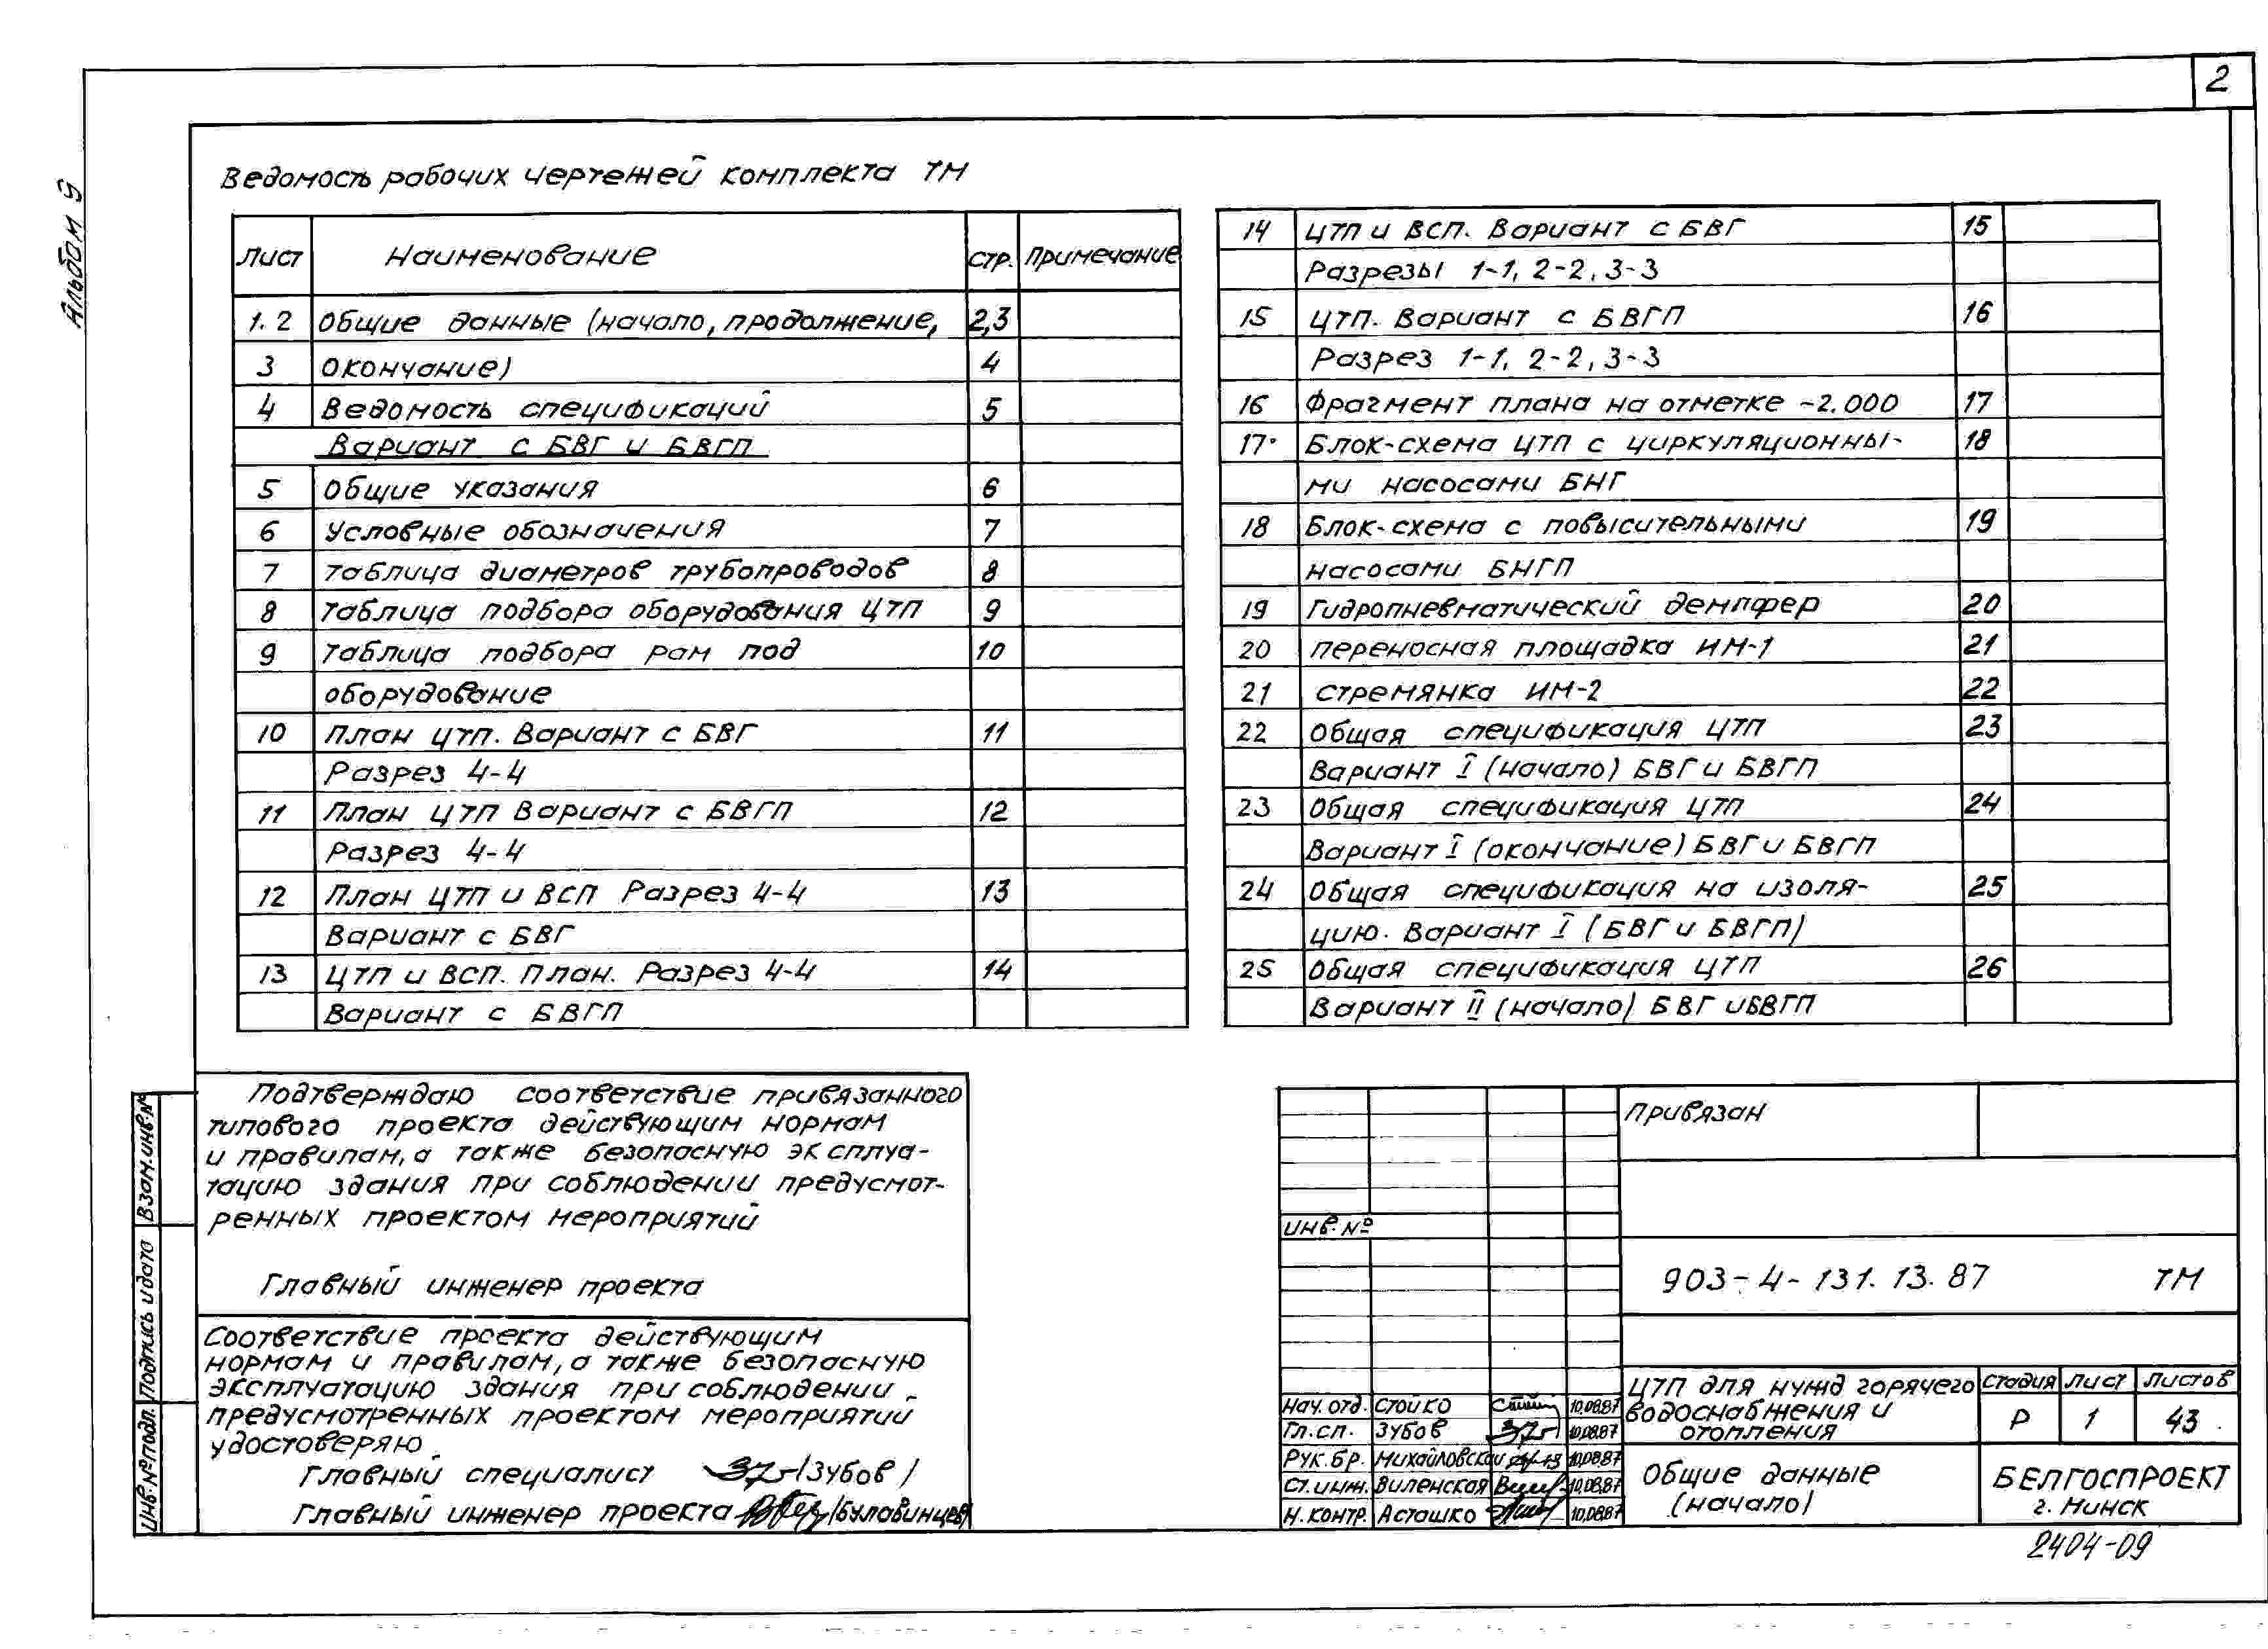 2
Альбом 9
Ведомость рабочих чертежей комплекта ТМ
Лист Наименование стр. Примечание
1. 2 Общие данные (начало, продолжение, 2,3
3 окончание) 4
4 Ведомость спецификаций 5
Вариант с БВГ и БВГП
5 Общие указания 6
6 Условные обозначения 7
7 Таблица диаметров трубопроводов 8
8 Таблица подбора оборудования ЦТП 9
9 Таблица подбора рам под 10
оборудование
10 План ЦТП. Вариант с БВГ 11
Разрез 4-4
11 План ЦТП Вариант с БВГП 12
Разрез 4-4
12 План ЦТП и ВСП Разрез 4-4 13
Вариант с БВГ
13 ЦТП и ВСП. План. Разрез 4-4 14
Вариант с БВГП
14 ЦТП и ВСП. Вариант с БВГ 15
Разрезы 1-1, 2-2, 3-3
15 ЦТП. Вариант с БВГП 16
Разрез 1-1, 2-2, 3-3
16 Фрагмент плана на отметке -2.000 17
17 Блок-схема ЦТП с циркуляционны- 18
ми насосами БНГ
18 Блок-схема с повысительными 19
насосами БНГП
19 Гидропневматический демпфер 20
20 Переносная площадка ИМ-1 21
21 Стремянка ИМ-2 22
22 Общая спецификация ЦТП 23
Вариант I (начало) БВГ и БВГП
23 Общая спецификация ЦТП 24
Вариант I (окончание) БВГ и БВГП
24 Общая спецификация на изоля- 25
цию. Вариант I (БВГ и БВГП)
25 Общая спецификация ЦТП 26
Вариант II (начало) БВГ и БВГП
Подтверждаю соответствие привязанного
типового проекта действующим нормам
и правилам, а также безопасную эксплуа-
тацию здания при соблюдении предусмот-
ренных проектом мероприятий
Главный инженер проекта
Соответствие проекта действующим
нормам и правилам, а также безопасную
эксплуатацию здания при соблюдении
предусмотренных проектом мероприятий
удостоверяю
Главный специалист /Зубов/
Главный инженер проекта /Булавинцев/
Взам. инв. №
Подпись и дата
Инв. № подл.
Привязан
инв. №
903-4-131.13.87 ТМ
Нач. отд. Стойко 10.08.87
Гл. сп. Зубов 10.08.87
Рук. бр. Михайловская 10.08.87
Ст. инж. Виленская 10.08.87
Н. контр. Асташко 10.08.87
ЦТП для нужд горячего
водоснабжения и
отопления
Стадия Лист Листов
Р 1 43
Общие данные
(начало)
БЕЛГОСПРОЕКТ
г. Минск
2404-09